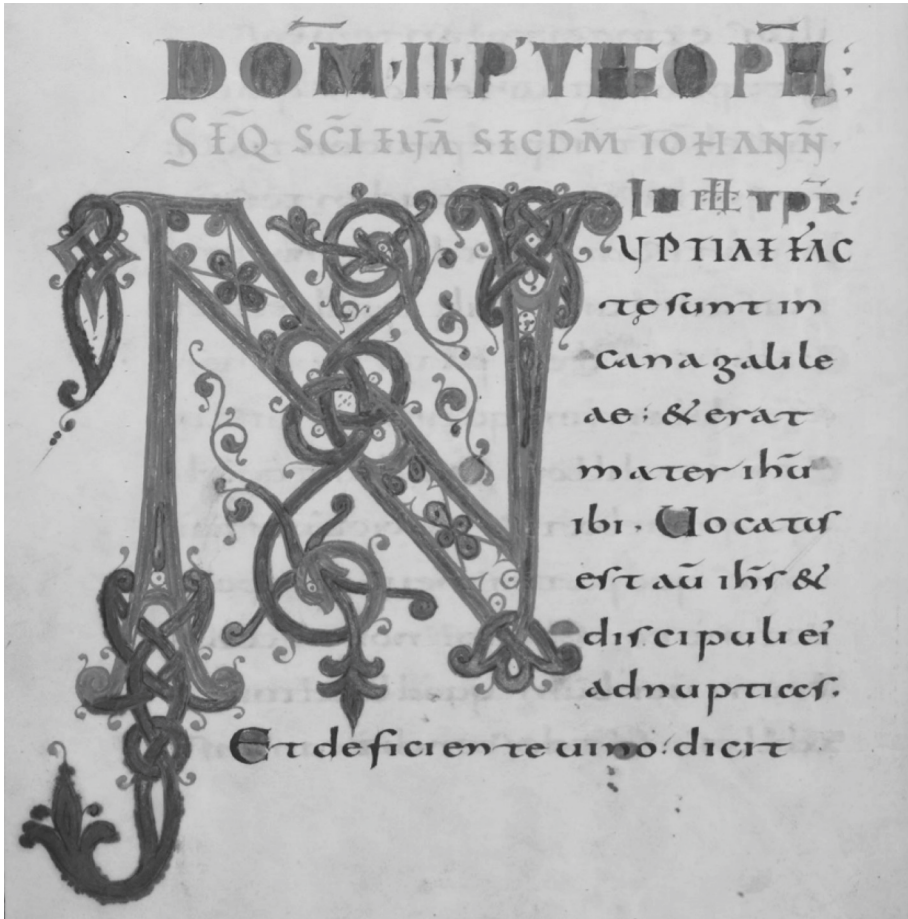 DOM̄·II·P'THEOPH̄:
SEQ̄ SC̄I EUĀ SECDM̄ IOHANN̄
IN ILL TPR̄:
NUPTIAE FAC
tę sunt in
cana galile
ae: & erat
mater ihū
ibi. Uocatus
est aū ihs̄ &
discipuli ei'
ad nuptias.
Et deficiente uino: dicit